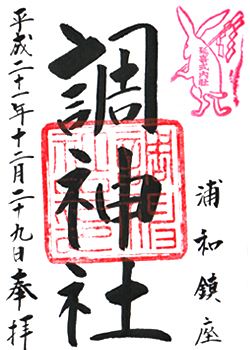 延喜式内社
浦和鎮座
調神社
平成二十一年十二月二十九日奉拝